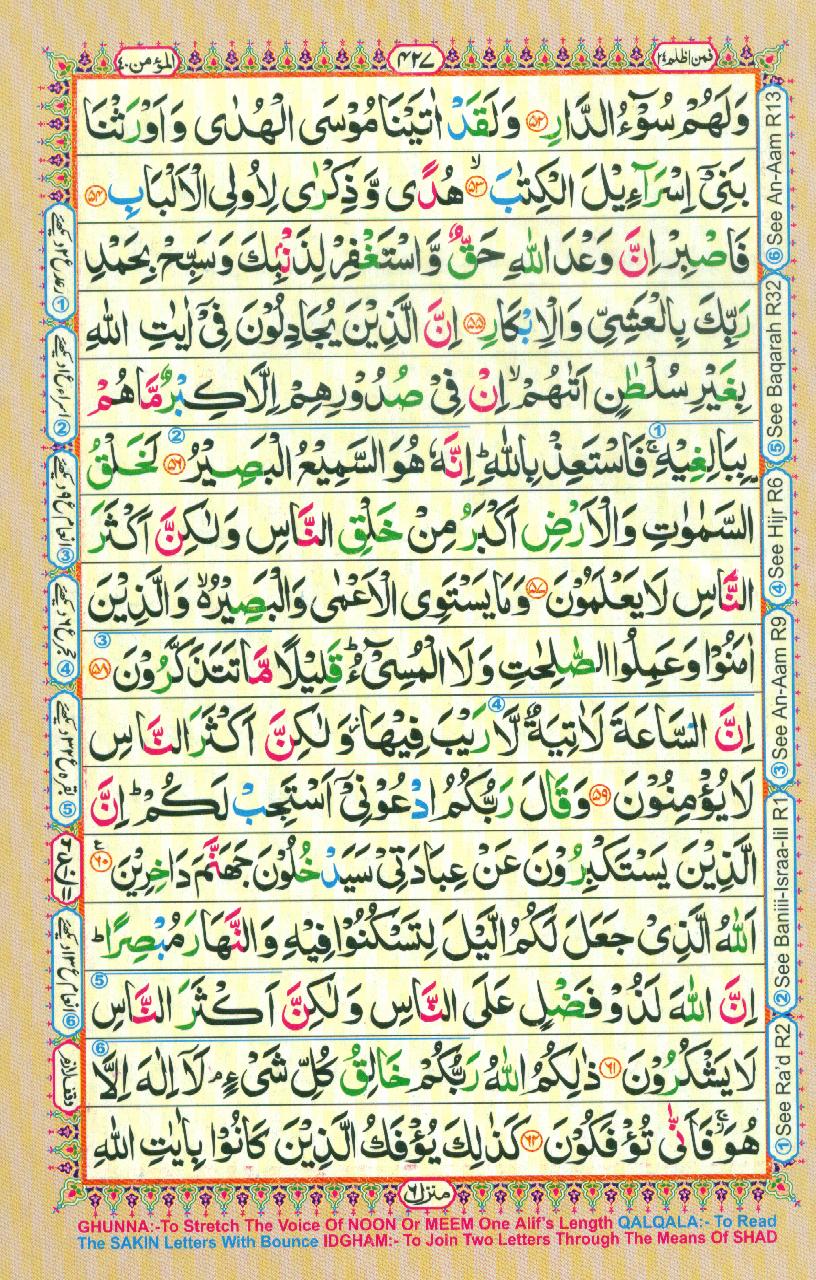 فمن اظلم ٢٤
٤٢٧
المؤمن ٤٠
وَلَهُمْ سُوْٓءُ الدَّارِ ﴿۵۲﴾ وَلَقَدْ اٰتَيْنَا مُوْسَى الْهُدٰى وَاَوْرَثْنَا
بَنِىْٓ اِسْرَآءِيْلَ الْكِتٰبَ ۙ﴿۵۳﴾ هُدًى وَّذِكْرٰى لِاُولِى الْاَلْبَابِ ﴿۵۴﴾
فَاصْبِرْ اِنَّ وَعْدَ اللّٰهِ حَقٌّ وَّاسْتَغْفِرْ لِذَنْۢبِكَ وَسَبِّحْ بِحَمْدِ
رَبِّكَ بِالْعَشِىِّ وَالْاِبْكَارِ ﴿۵۵﴾ اِنَّ الَّذِيْنَ يُجَادِلُوْنَ فِىْٓ اٰيٰتِ اللّٰهِ
بِغَيْرِ سُلْطٰنٍ اَتٰٮهُمْ ۙ اِنْ فِىْ صُدُوْرِهِمْ اِلَّا كِبْرٌ مَّا هُمْ
بِبَالِغِيْهِ ؕۚ فَاسْتَعِذْ بِاللّٰهِ ؕ اِنَّهٗ هُوَ السَّمِيْعُ الْبَصِيْرُ ﴿۵۶﴾ لَخَلْقُ
السَّمٰوٰتِ وَالْاَرْضِ اَكْبَرُ مِنْ خَلْقِ النَّاسِ وَلٰكِنَّ اَكْثَرَ
النَّاسِ لَا يَعْلَمُوْنَ ﴿۵۷﴾ وَمَا يَسْتَوِى الْاَعْمٰى وَالْبَصِيْرُ ۙ وَالَّذِيْنَ
اٰمَنُوْا وَعَمِلُوا الصّٰلِحٰتِ وَلَا الْمُسِىْٓءُ ؕ قَلِيْلًا مَّا تَتَذَكَّرُوْنَ ﴿۵۸﴾
اِنَّ السَّاعَةَ لَاٰتِيَةٌ لَّا رَيْبَ فِيْهَا وَلٰكِنَّ اَكْثَرَ النَّاسِ
لَا يُؤْمِنُوْنَ ﴿۵۹﴾ وَقَالَ رَبُّكُمُ ادْعُوْنِىْٓ اَسْتَجِبْ لَكُمْ ؕ اِنَّ
الَّذِيْنَ يَسْتَكْبِرُوْنَ عَنْ عِبَادَتِىْ سَيَدْخُلُوْنَ جَهَنَّمَ دَاخِرِيْنَ ﴿۶۰﴾
اَللّٰهُ الَّذِىْ جَعَلَ لَكُمُ الَّيْلَ لِتَسْكُنُوْا فِيْهِ وَالنَّهَارَ مُبْصِرًا ؕ
اِنَّ اللّٰهَ لَذُوْ فَضْلٍ عَلَى النَّاسِ وَلٰكِنَّ اَكْثَرَ النَّاسِ
لَا يَشْكُرُوْنَ ﴿۶۱﴾ ذٰلِكُمُ اللّٰهُ رَبُّكُمْ خَالِقُ كُلِّ شَىْءٍ ۘ لَاۤ اِلٰهَ اِلَّا
هُوَ ؗۚ فَاَنّٰى تُؤْفَكُوْنَ ﴿۶۲﴾ كَذٰلِكَ يُؤْفَكُ الَّذِيْنَ كَانُوْا بِاٰيٰتِ اللّٰهِ
منزل ٦
⑥ See An-Aam R13
⑤ See Baqarah R32
④ See Hijr R6
③ See An-Aam R9
② See Baniii-Israa-Iil R1
① See Ra'd R2
وقف لازم
GHUNNA:-To Stretch The Voice Of NOON Or MEEM One Alif's Length QALQALA:- To Read
The SAKIN Letters With Bounce IDGHAM:- To Join Two Letters Through The Means Of SHAD